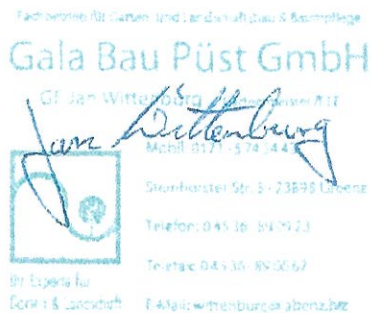 Fachbetrieb für Garten- und Landschaftsbau & Baumpflege
Gala Bau Püst GmbH
GF Jan Wittenburg
Jan Wittenburg
Mobil: 0171 - 5 74 34 4
Steinhorster Str. 5 - 23898 Labenz
Telefon: 0 45 36 - 89 09 23
Telefax: 0 45 36 - 89
Ihr Experte für
Garten & Landschaft
E-Mail: